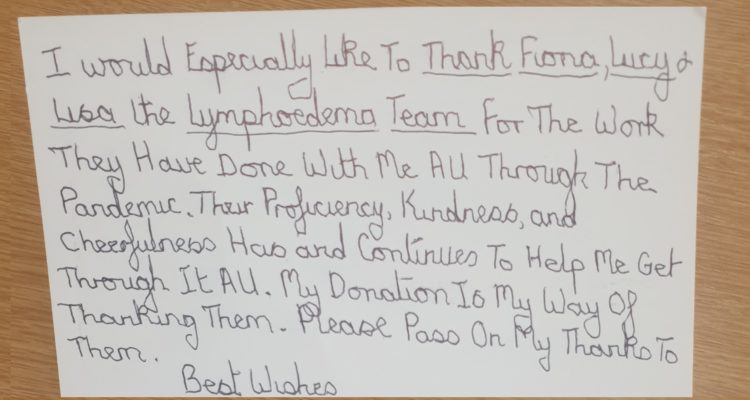 I would Especially Like To Thank Fiona, Lucy &
Lisa the Lymphoedema Team For The Work
They Have Done With Me All Through The
Pandemic. Their Proficiency, Kindness, and
Cheerfulness Has and Continues To Help Me Get
Through It All. My Donation Is My Way Of
Thanking Them. Please Pass On My Thanks To
Them.
Best Wishes